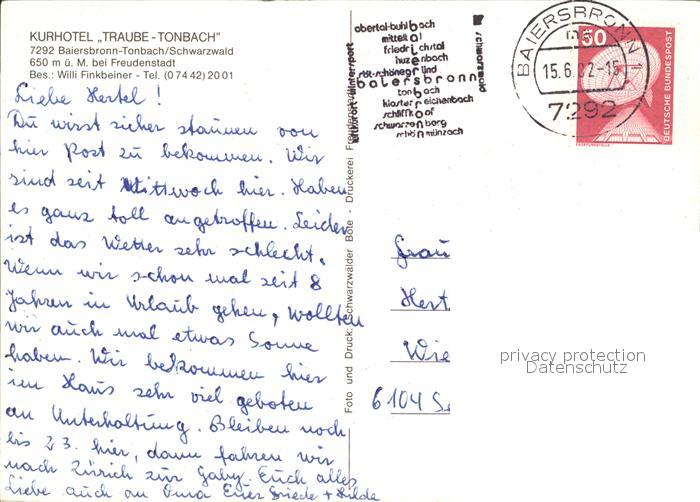 KURHOTEL „TRAUBE-TONBACH”
7292 Baiersbronn-Tonbach/Schwarzwald
650 m ü. M. bei Freudenstadt
Bes.: Willi Finkbeiner - Tel. (0 74 42) 20 01
Liebe Hertel!
Du wirst sicher staunen von
hier Post zu bekommen. Wir
sind seit Mittwoch hier. Haben
es ganz toll angetroffen. Leider
ist das Wetter sehr schlecht.
Wenn wir schon mal seit 8
Jahren in Urlaub gehen, wollten
wir auch mal etwas Sonne
haben. Wir bekommen hier
im Haus sehr viel geboten
an Unterhaltung. Bleiben noch
bis 23. hier, dann fahren wir
nach Zürich zur Gaby. Euch alles
Liebe auch an Oma Eure Friede + Hilde
Foto und Druck: Schwarzwälder Bote - Druckerei
obertal-buhlbach
mitteltal
friedrichstal
huzenbach
röt-schönegründ
baiersbronn
tonbach
kloster reichenbach
schliffkopf
schwarzenberg
schönmünzach
schwarzwald
BAIERSBRONN
15.6.82-15
7292
50
DEUTSCHE BUNDESPOST
Frau
Hert
Wie
6104 S
privacy protection
Datenschutz